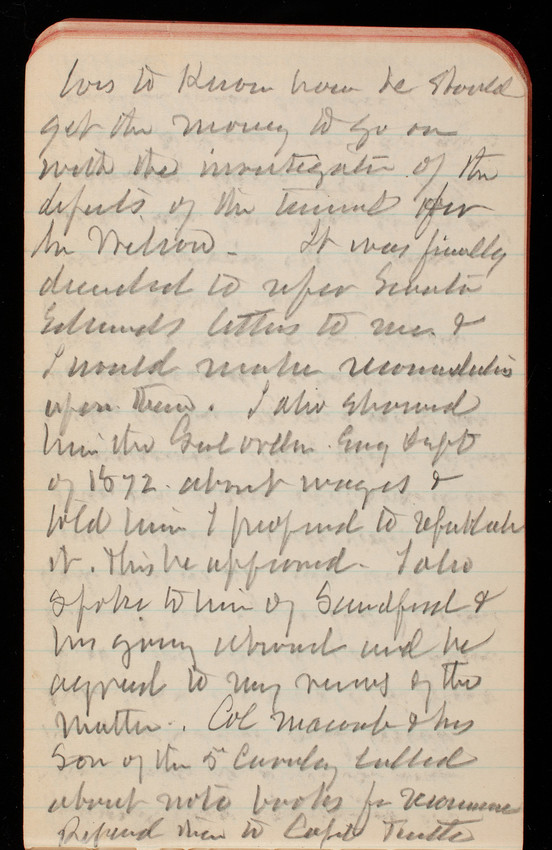 to know how he should
get the money to go on
with the investigation of the
defects of the tunnel
Mr Wilson - It was finally
decided to refer Senator
Edmunds letters to me &
I would make recommendations
upon them. I also showed
him the Genl order. Eng Dept
of 1872. about wages &
told him I proposed to republish
it. This he approved - I also
spoke to him of Sandford &
his going abroad and he
agreed to my views of the
matter. Col Macomb & his
son of the 5 Cavalry called
about note books for
Refered them to Capt